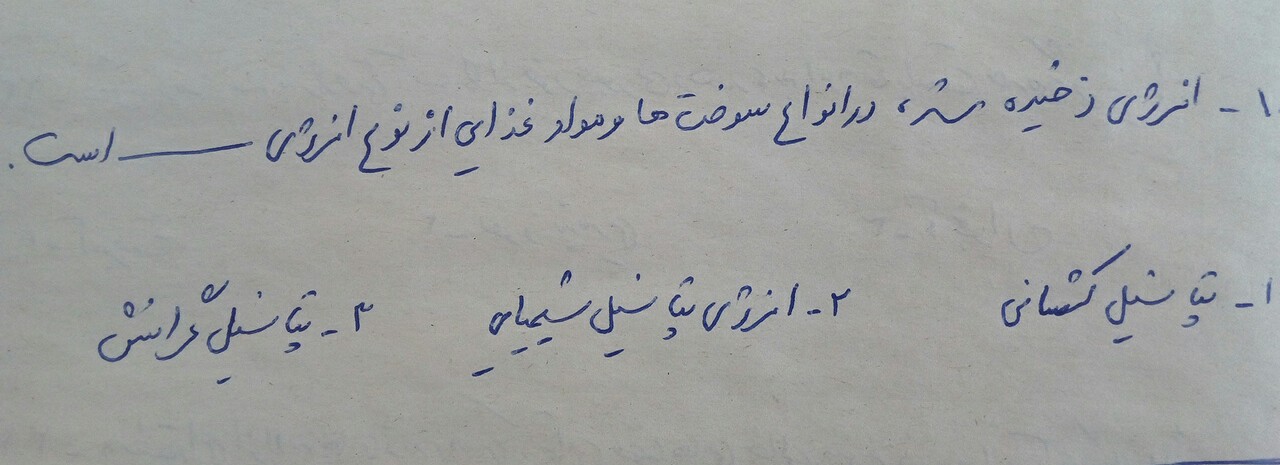 ۱- انرژی ذخیره شده در انواع سوخت ها و مواد غذایی از نوع انرژی ـــــــ است.
۱- پتانسیل کشسانی ۲- انرژی پتانسیل شیمیایی ۳- پتانسیل گرانش